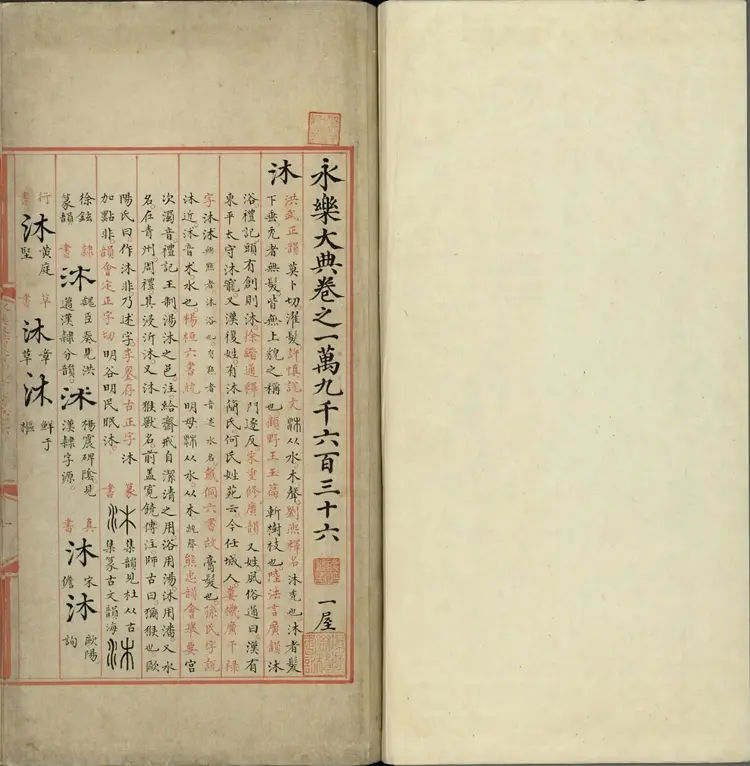 永樂大典卷之一萬九千六百三十六 一屋
沐
洪武正韻莫卜切濯髮許慎說文从水木聲劉熙釋名沐禿也沐者髮
下垂禿者無髮皆無上貌之稱也顧野王玉篇斬樹枝也陸法言廣韻沐
浴禮記頭有創則沐徐鍇通釋門逐反宋重修廣韻又姓風俗通曰漢有
東平太守沐寵又漢復姓有沐簡氏何氏姓苑云今任城人婁機廣干祿
字沐沐無點者沐浴也有點者音述水名戴侗六書故膏髮也孫氏字說
沐近沐音求水也楊桓六書統明母从水从木諧聲熊忠韻會舉要宮
次濁音禮記王制湯沐之邑注給齋戒自潔清之用浴用湯沐用潘又水
名在青州周禮其浸沂沐又沐猴獸名前蓋寬饒傳注師古曰獼猴也歐
陽氏曰作沐非乃述字李銎存古正字沐
加點非韻會定正字切明谷明民眠沐
篆書 沐 集韻見杜从古 集篆古文韻海 沐
徐鉉篆韻 隸書 沐 魏臣奏見洪适漢隸分韻。 沐 楊震碑陰見漢隸字源。 真書 沐 宋儋 沐 歐陽詢
行書 沐 黃庭堅 草書 沐 章草 沐 鮮于樞